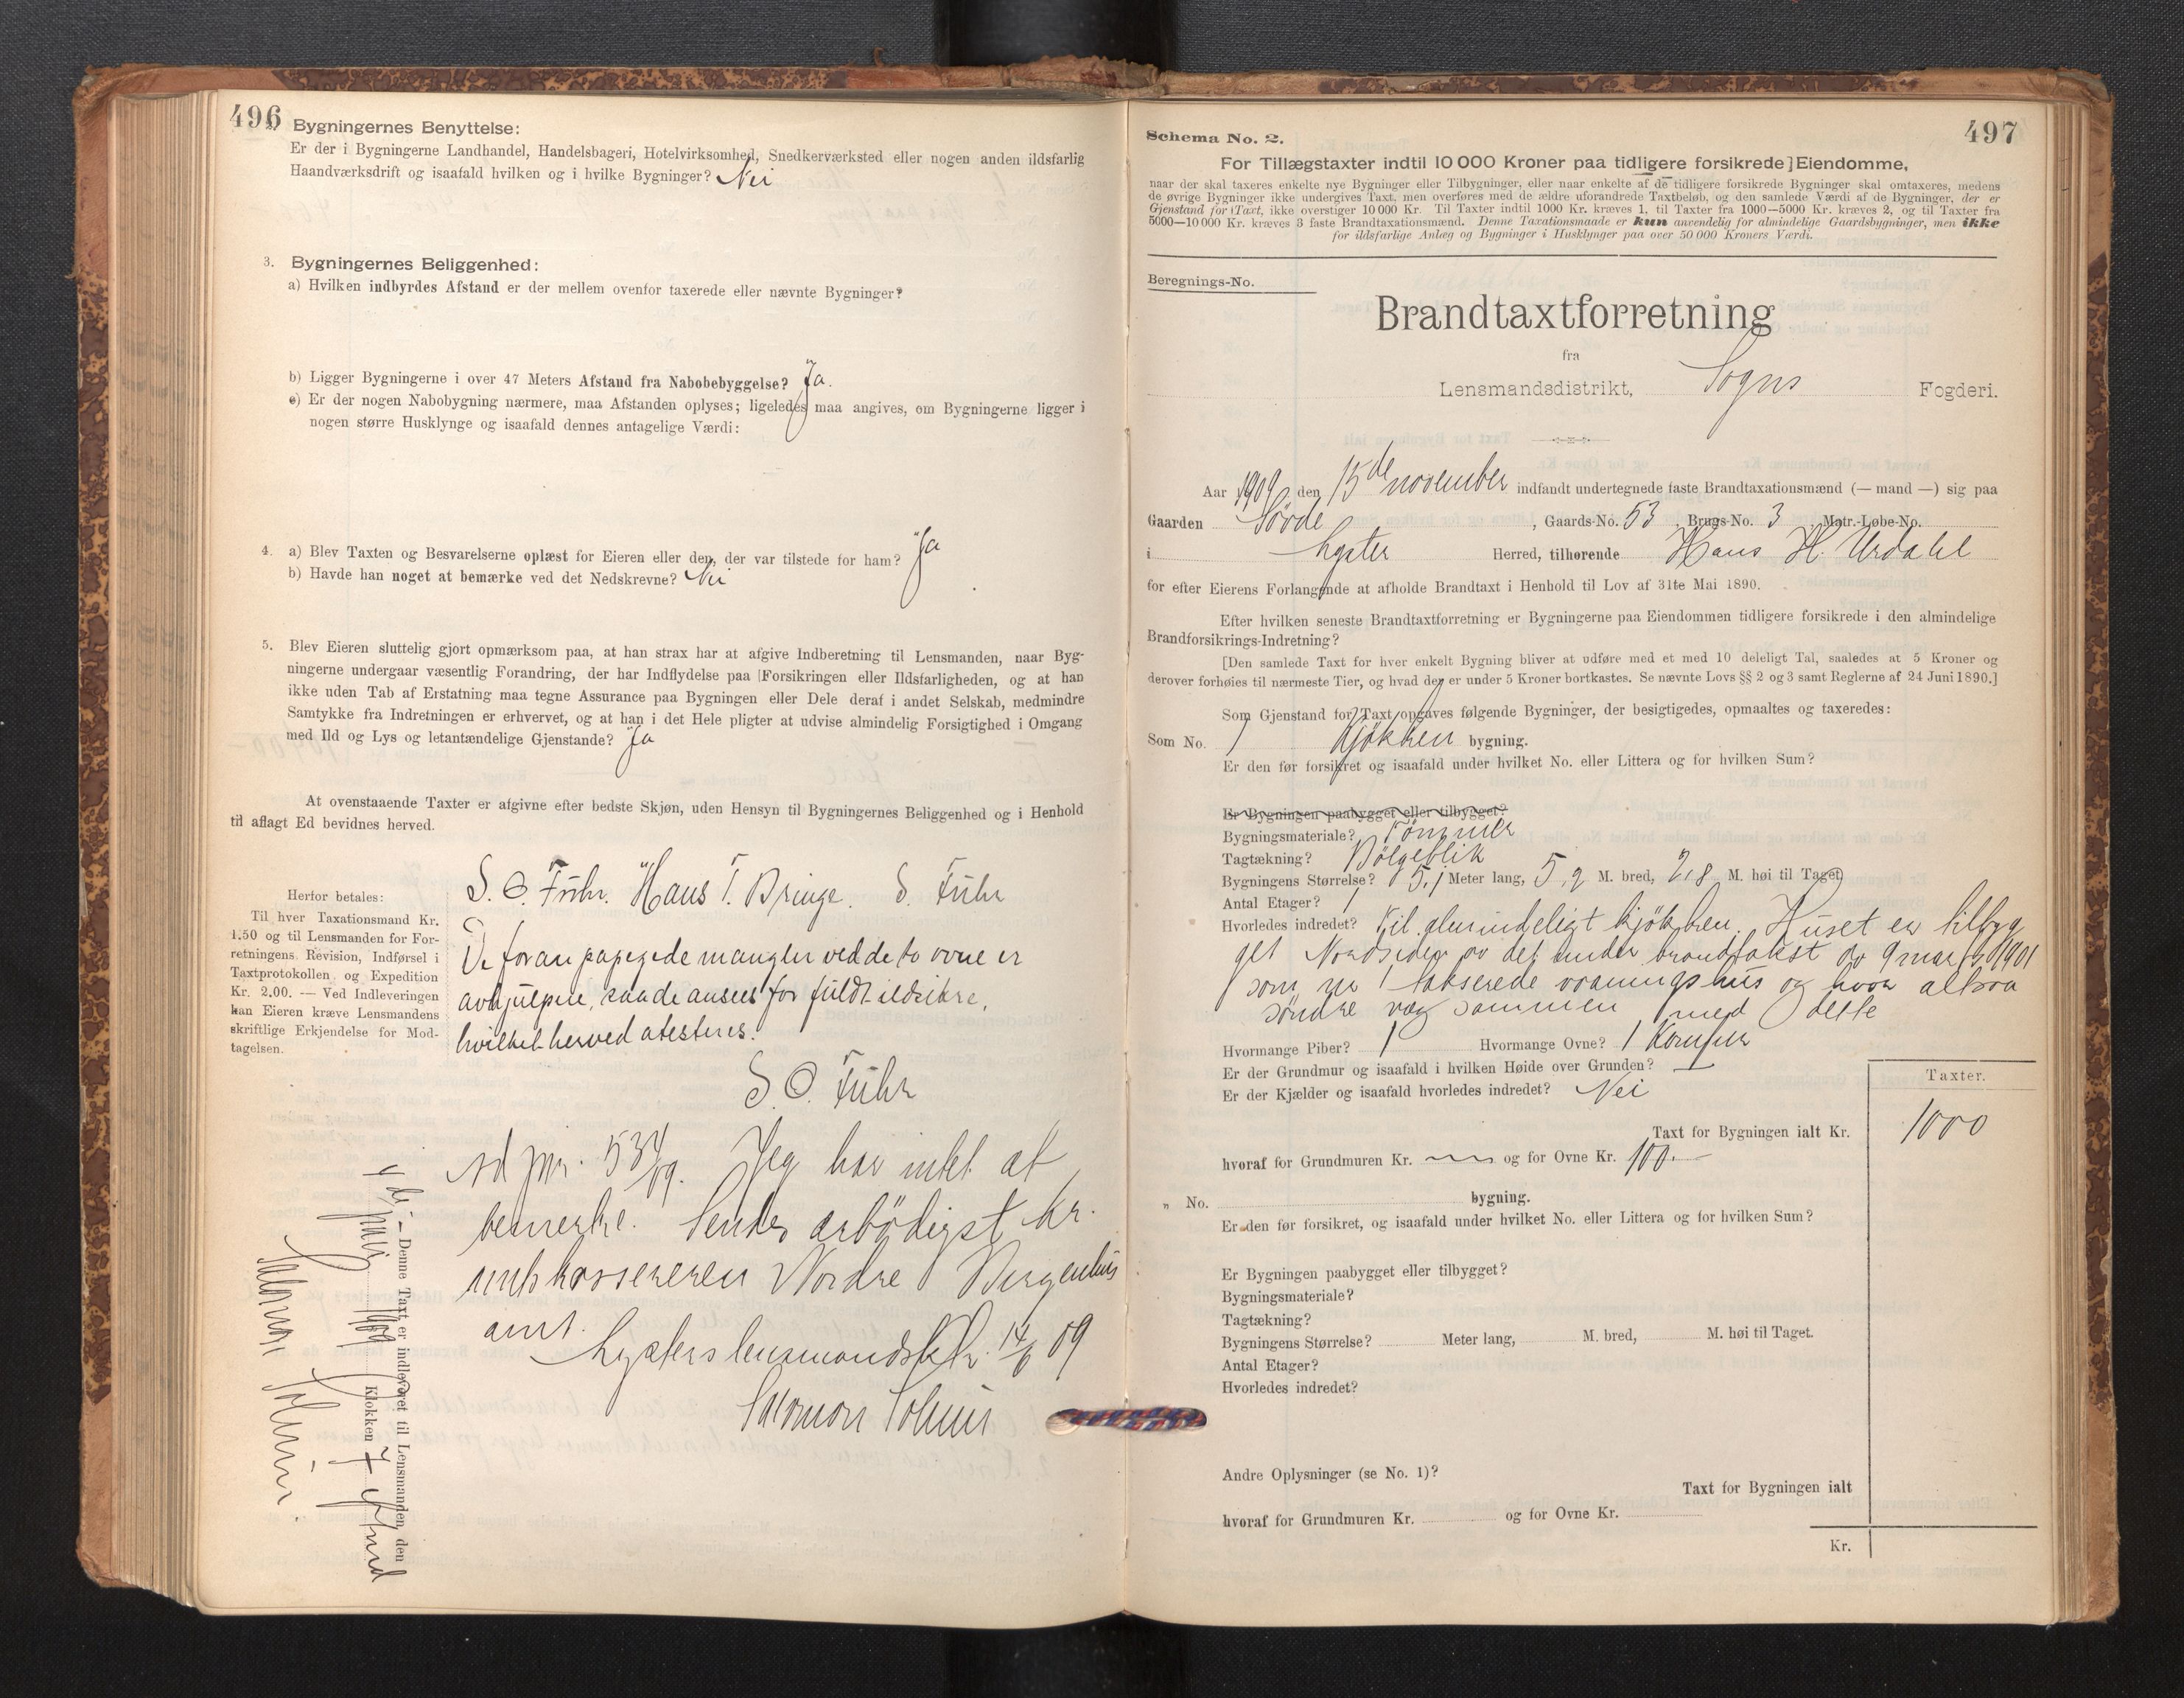 496
2. Bygningernes Benyttelse:
Er der i Bygningerne Landhandel, Handelsbageri, Hotelvirksomhed, Snedkerværksted eller nogen anden ildsfarlig
Haandværksdrift og isaafald hvilken og i hvilke Bygninger? Nei
3. Bygningernes Beliggenhed:
a) Hvilken indbyrdes Afstand er der mellem ovenfor taxerede eller nævnte Bygninger?
b) Ligger Bygningerne i over 47 Meters Afstand fra Nabobebyggelse? Ja.
c) Er der nogen Nabobygning nærmere, maa Afstanden oplyses; ligeledes maa angives, om Bygningerne ligger i
nogen større Husklynge og isaafald dennes antagelige Værdi:
4. a) Blev Taxten og Besvarelserne oplæst for Eieren eller den, der var tilstede for ham? Ja
b) Havde han noget at bemærke ved det Nedskrevne? Nei
5. Blev Eieren sluttelig gjort opmærksom paa, at han strax har at afgive Indberetning til Lensmanden, naar Byg-
ningerne undergaar væsentlig Forandring, der har Indflydelse paa Forsikringen eller Ildsfarligheden, og at han
ikke uden Tab af Erstatning maa tegne Assurance paa Bygningen eller Dele deraf i andet Selskab, medmindre
Samtykke fra Indretningen er erhvervet, og at han i det Hele pligter at udvise almindelig Forsigtighed i Omgang
med Ild og Lys og letantændelige Gjenstande? Ja
At ovenstaaende Taxter er afgivne efter bedste Skjøn, uden Hensyn til Bygningernes Beliggenhed og i Henhold
til aflagt Ed bevidnes herved.
S. O. Fuhr. Hans T. Bringe. S. Fuhr
Herfor betales:
Til hver Taxationsmand Kr.
1.50 og til Lensmanden for For-
retningens Revision, Indførsel i
Taxtprotokollen og Expedition
Kr. 2.00. — Ved Indleveringen
kan Eieren kræve Lensmandens
skriftlige Erkjendelse for Mod-
tagelsen.
De foran papegede mangler ved de to ovne er
avhjulpne, saa de ansees for fuldt ildsikre,
hvilket herved atesteres.
S. O. Fuhr
Ad jnr. 534/09. Jeg har intet at
bemerke. Sendes ærbödigst hr.
amtskassereren Nordre Bergenhus
amt.
Lysters lensmandsk. 14/6 09
Salomon
Denne Taxt er indleveret til Lensmanden den
juni 1909 Klokken 7
Salomon
497
Schema No. 2.
For Tillægstaxter indtil 10 000 Kroner paa tidligere forsikrede Eiendomme,
naar der skal taxeres enkelte nye Bygninger eller Tilbygninger, eller naar enkelte af de tidligere forsikrede Bygninger skal omtaxeres, medens
de øvrige Bygninger ikke undergives Taxt, men overføres med de ældre uforandrede Taxtbeløb, og den samlede Værdi af de Bygninger, der er
Gjenstand for Taxt, ikke overstiger 10 000 Kr. Til Taxter indtil 1000 Kr. kræves 1, til Taxter fra 1000—5000 Kr. kræves 2, og til Taxter fra
5000—10 000 Kr. kræves 3 faste Brandtaxationsmænd. Denne Taxationsmaade er kun anvendelig for almindelige Gaardsbygninger, men ikke
for ildsfarlige Anlæg og Bygninger i Husklynger paa over 50 000 Kroners Værdi.
Beregnings-No.
Brandtaxtforretning
fra
Lensmandsdistrikt, Sogns Fogderi.
Aar 1909 den 15de november indfandt undertegnede faste Brandtaxationsmænd (— mand —) sig paa
Gaarden Sörde, Gaards-No. 53, Brugs-No. 3 Matr.-Løbe-No.
i Lyster Herred, tilhørende Hans H. Urdahl
for efter Eierens Forlangende at afholde Brandtaxt i Henhold til Lov af 31te Mai 1890.
Efter hvilken seneste Brandtaxtforretning er Bygningerne paa Eiendommen tidligere forsikrede i den almindelige
Brandforsikrings-Indretning?
[Den samlede Taxt for hver enkelt Bygning bliver at udføre med et med 10 deleligt Tal, saaledes at 5 Kroner og
derover forhøies til nærmeste Tier, og hvad der er under 5 Kroner bortkastes. Se nævnte Lovs §§ 2 og 3 samt Reglerne af 24 Juni 1890.]
Som Gjenstand for Taxt opgaves følgende Bygninger, der besigtigedes, opmaaltes og taxeredes:
Som No. 1 Kjökken bygning.
Er den før forsikret og isaafald under hvilket No. eller Littera og for hvilken Sum?
Er Bygningen paabygget eller tilbygget?
Bygningsmateriale? Tömmer
Tagtækning? Bölgeblik
Bygningens Størrelse? 5,1 Meter lang, 5,2 M. bred, 2,8 M. høi til Taget
Antal Etager? 1
Hvorledes indret? Til almindeligt kjökken. Huset er tilbyg
get Nordsiden av det under brandtakst av 9 mars 1901
som nr 1 takserede vaaningshus og har altsaa
söndre væg sammen med dette
Hvormange Piber? 1 Hvormange Ovne? 1 Komfur
Er der Grundmur og isaafald i hvilken Høide over Grunden? —
Er der Kjælder og isaafald hvorledes indredet? Nei
Taxter.
Taxt for Bygningen ialt Kr. 1000
hvoraf for Grundmuren Kr. — og for Ovne Kr. 100.—
„ No. bygning.
Er den før forsikret, og isaafald under hvilket No. eller Littera og for hvilken Sum?
Er Bygningen paabygget eller tilbygget?
Bygningsmateriale?
Tagtækning?
Bygningens Størrelse? Meter lang, M. bred, M. høi til Taget.
Antal Etager?
Hvorledes indredet?
Andre Oplysninger (se No. 1)?
Taxt for Bygningen ialt
hvoraf for Grundmuren Kr. og for Ovne Kr.
Kr.